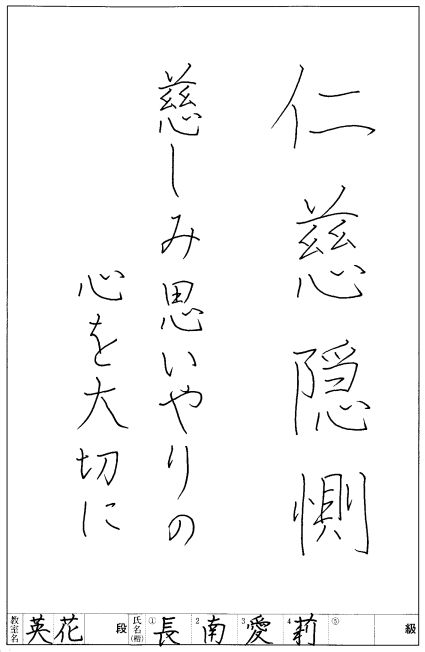 仁慈隠惻
慈しみ思いやりの
心を大切に
教室名 英花 段 氏名(楷) ① 長 2 南 3 愛 4 莉 ⑤ 級